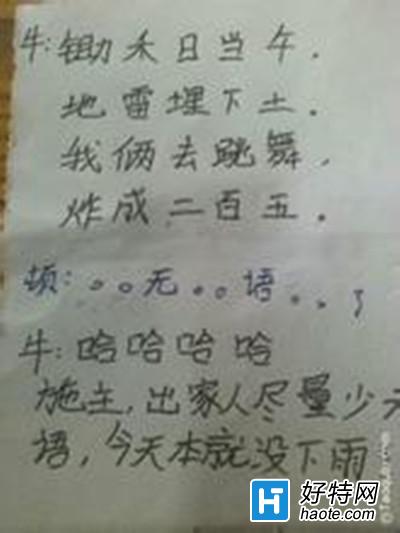 牛:锄禾日当午.
地雷埋下土.
我俩去跳舞,
炸成二百五.
顿:。。无。。语。。了
牛:哈哈哈哈
施主,出家人尽量少无
语,今天本就没下雨
好特网
haote.com